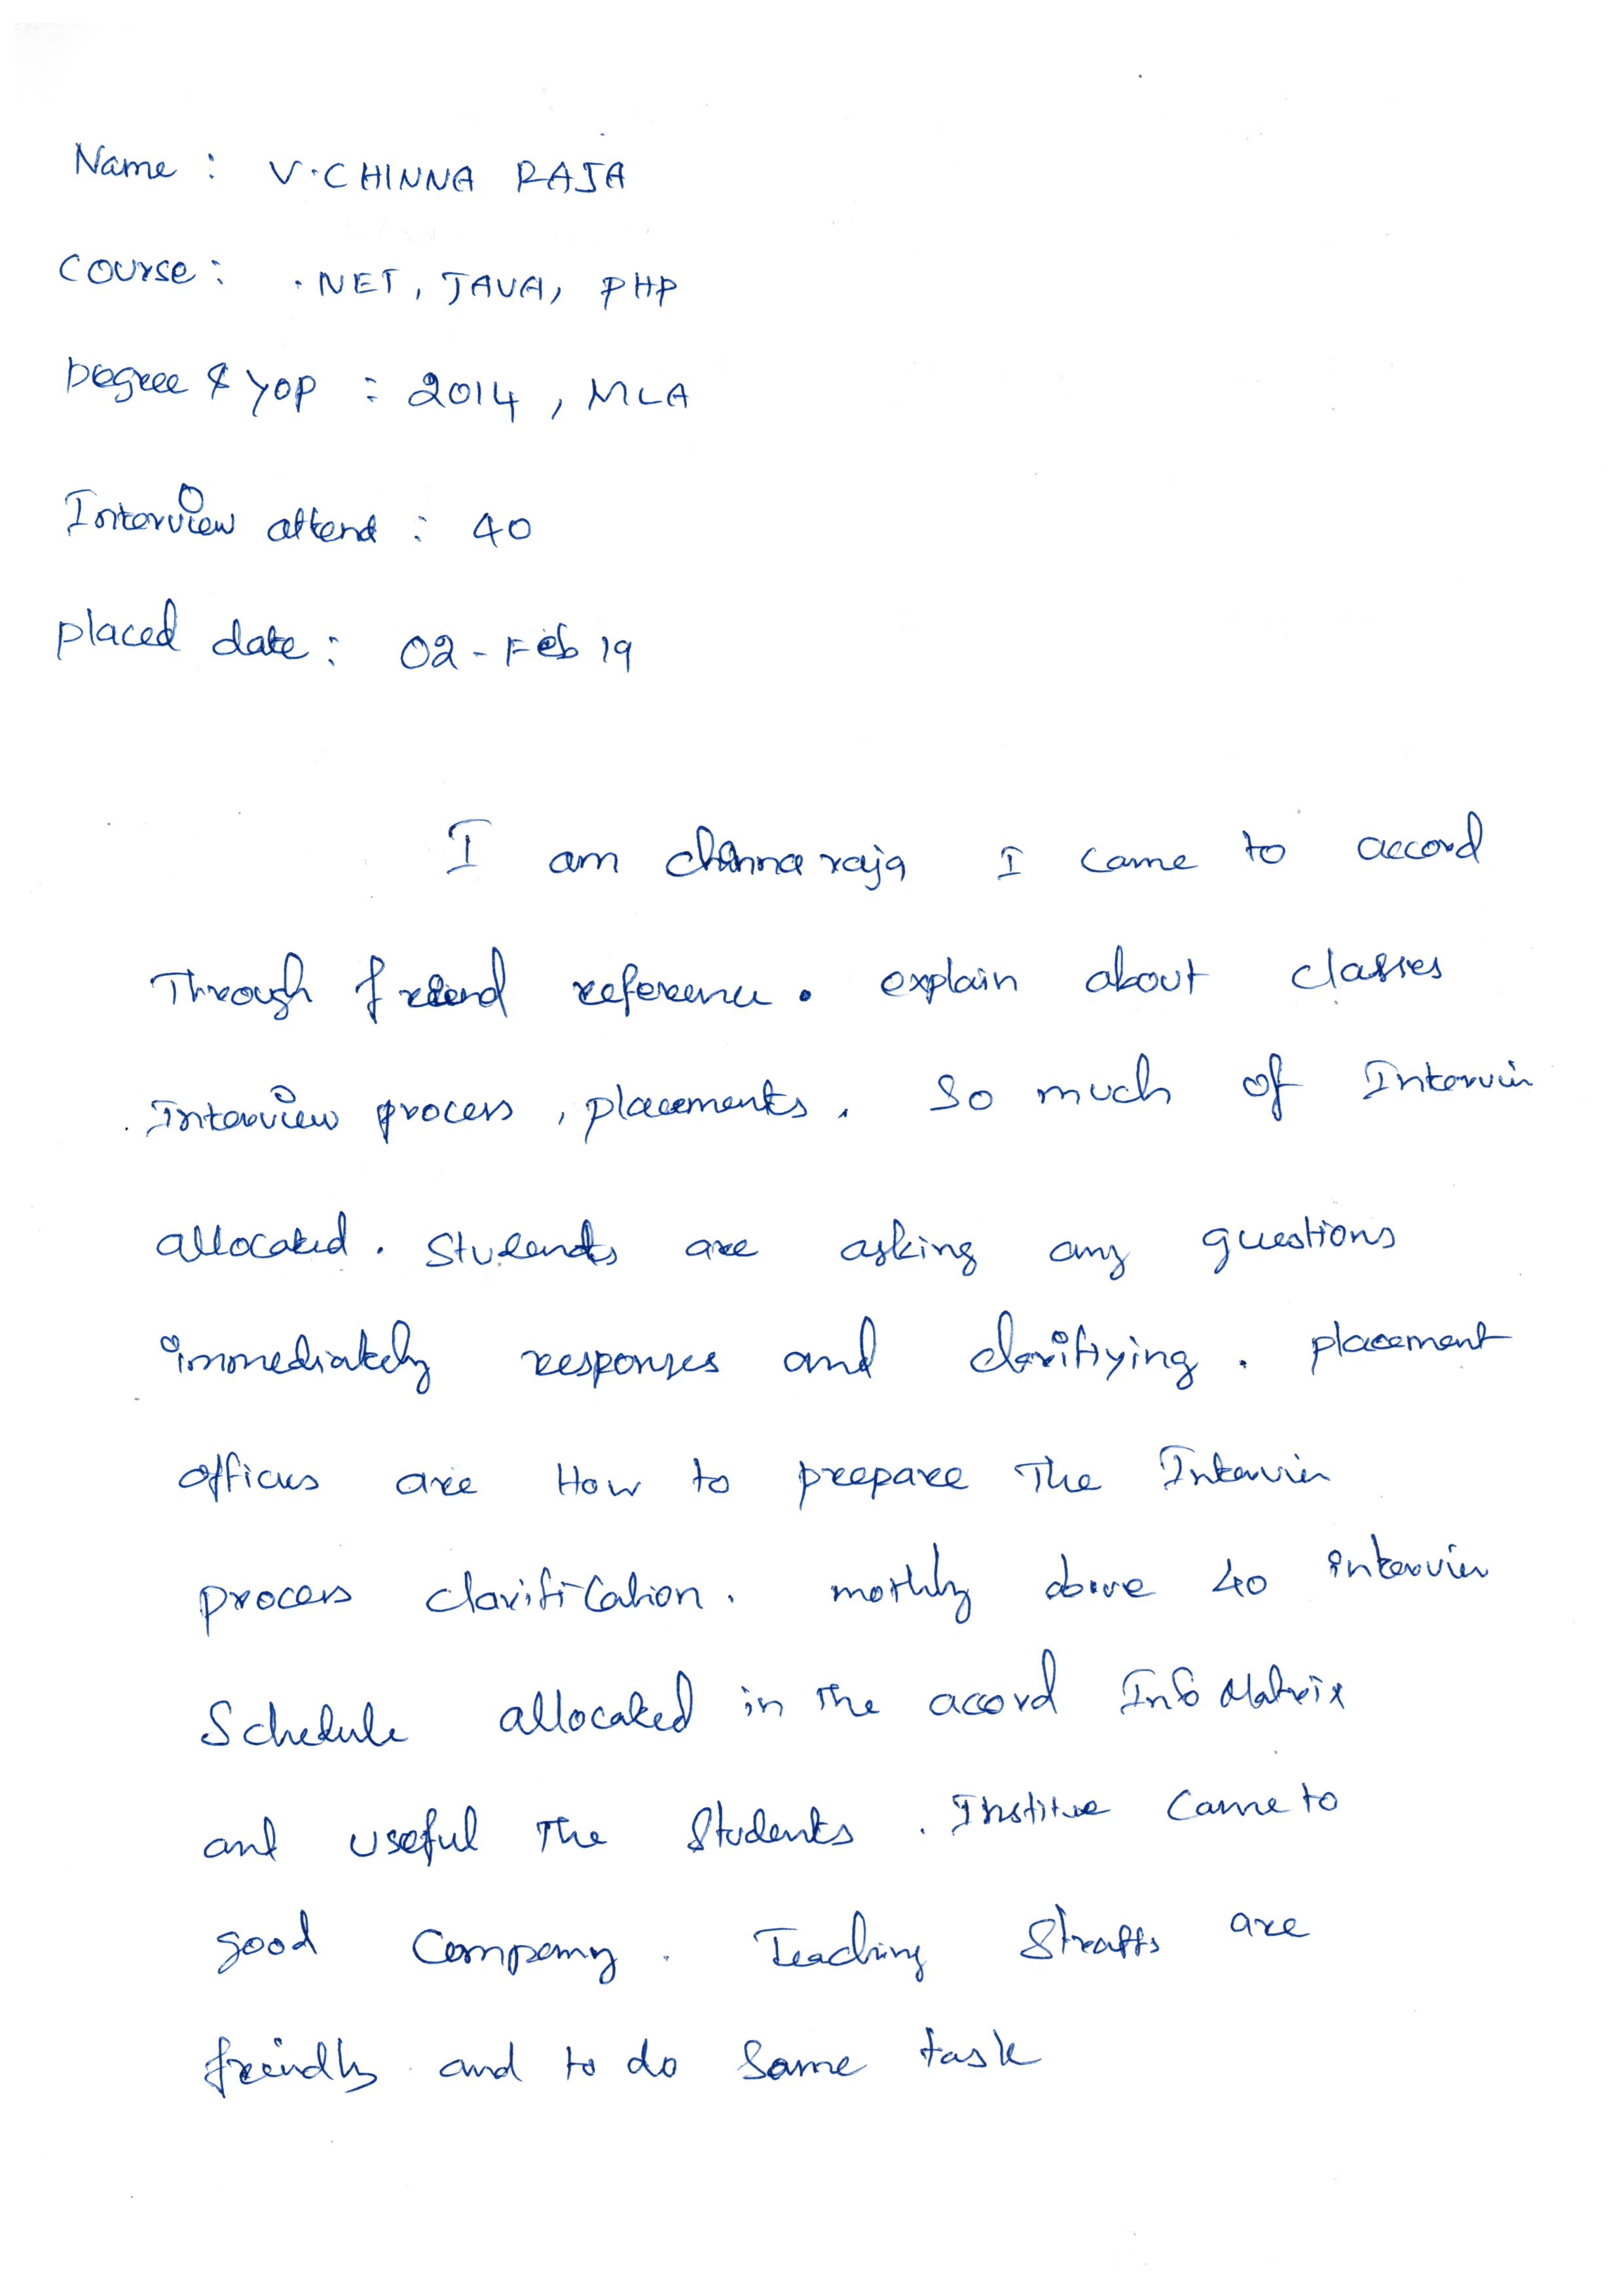 Name : V.CHINNA RAJA
Course : .NET, JAVA, PHP
Degree & YOP : 2014 , MCA
Interview attend : 40
placed date : 02 - Feb 19
I am chinna raja I came to accord
Through friend reference . explain about classes
Interview process , placements . So much of Interview
allocated . Students are asking any questions
immediately responses and clarifiying . placement
officers are How to prepare The Interview
process clarification . mothly above 40 interview
Schedule allocated in The accord Info Matrix
and useful The Students . Institue Came to
good Company . Teaching Straffs are
freindly and to do Same task